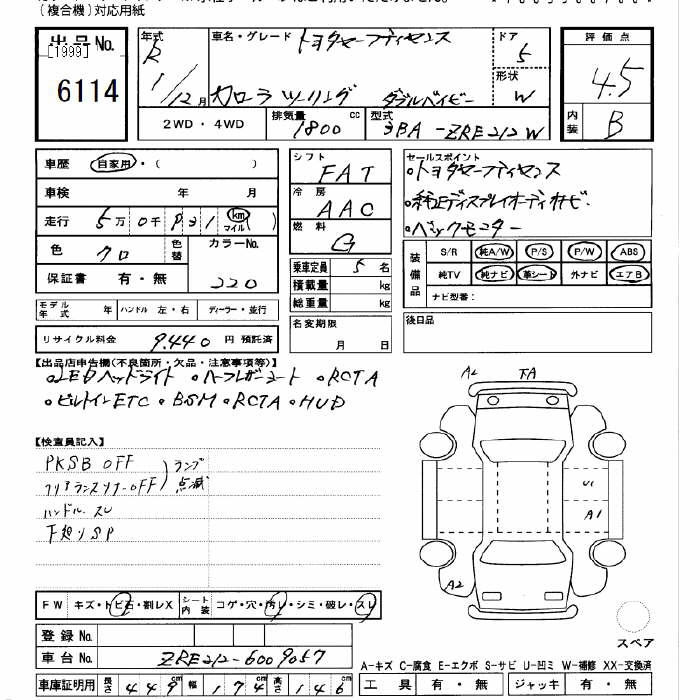 (複合機)対応用紙
出品No. 年式 R 車名・グレード トヨタセーフティセンス ドア 5 評価点
[1999] 形状 W 4.5
6114 1/12月 カローラ ツーリング ダブルバイビー 内装 B
2WD・4WD 排気量 1800 cc 型式 3BA-ZRE212W
車歴 自家用・( )
車検 年 月
走行 5万0千 km マイル ( )
色 クロ 色替 カラーNo. 220
保証書 有・無
モデル年式 年 ハンドル 左・右 ディーラー・並行
リサイクル料金 9,440 円 預託済
シフト FAT
冷房 AAC
燃料 G
乗車定員 5 名
積載量 kg
総重量 kg
名変期限 月 日
セールスポイント
・トヨタセーフティセンス
・純正ディスプレイオーディオナビ
・バックモニター
装備品 S/R 純A/W P/S P/W ABS
純TV 純ナビ 革シート 外ナビ エアB
ナビ型番:
後日品
【出品店申告欄(不良箇所・欠品・注意事項等)】
・LEDヘッドライト ・ハーフレザーシート ・RCTA
・ビルトインETC ・BSM ・RCTA ・HUD
【検査員記入】
PKSB OFF ランプ
クリアランスソナーOFF 点滅
ハンドル スレ
下廻りSP
A2 FA
U1
A1
A2
スペア
FW キズ・トビ石・割レX シート内装 コゲ・穴・汚レ・シミ・破レ・スレ
登録No.
車台No. ZRE212-6009057
車庫証明用 長さ 449cm 幅 174cm 高さ 146cm
A-キズ C-腐食 E-エクボ S-サビ U-凹ミ W-補修 XX-交換済
工具 有・無 ジャッキ 有・無